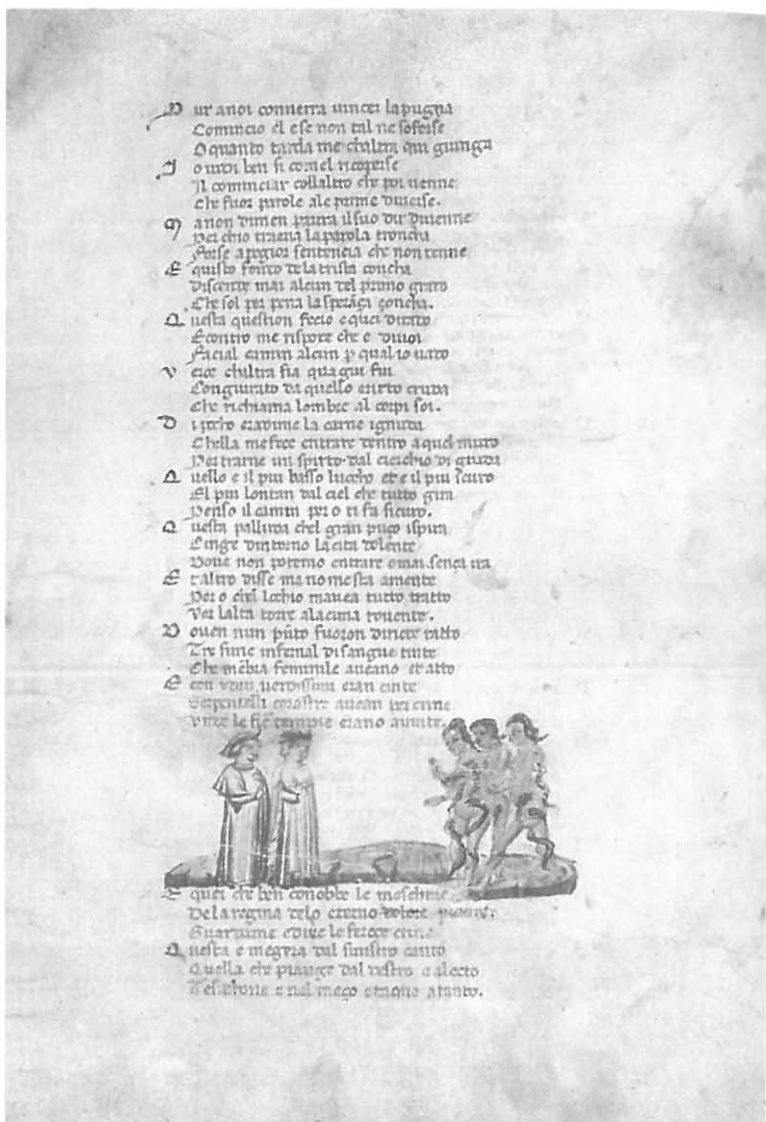 P ur anoi conuerra uincer la pugna
Comincio el ese non tal ne soferse
O quanto tarda me chaltri qui giunga
I o uidi ben si comel ricoperse
Il cominciar collaltro che poi uenne
Che fuor parole ale prime diuerse.
M a non dimen paura il suo dir dienne
Per chio traeua la parola troncha
Forse a pegior sentencia che non tenne
E questo fondo de la trista concha
Discende mai alcun del primo grado
Che sol per pena la sperãça çoncha.
Q uesta question fecio e quei di rado
Econtro me rispoxe che e dinoi
Facial camin alcun p qual io uado
V er e chaltra fia qua giu fui
Congiurato da quello ericto cruda
Che richiama lombre al corpi soi.
D i pocho era dime la carne ignuda
Chella me fece entrare dentro a quel muro
Per trarne un spirto dal cierchio di giuda
Q uello e il piu basso luocho et e il piu scuro
El piu lontan dal ciel che tutto gira
Ben so il camin pero ti fa sicuro.
Q uesta palude chel gran puço ispira
Cinge dintorno la cita dolente
Doue non potemo entrare omai sença ira
E t altro disse ma no me sta a mente
Pero chel lochio mauea tutto tratto
Ver lalta torre ala cima rouente.
D oue in un pũto fuoron diricte ratto
Tre furie infernal di sangue tinte
Che mẽbia feminile aueano et atto
E con ydre uerdissime eran cinte
Serpentelli ceraste auean per crine
Onde le fiere tempie erano auinte.
E quei che ben conobbe le meschine
De la regina delo eterno
Guardame edixe le feroce erine
Q uesta e megera dal sinistro canto
Quella che piange dal destro e alecto
Tesiphone e nel meço e taque atanto.